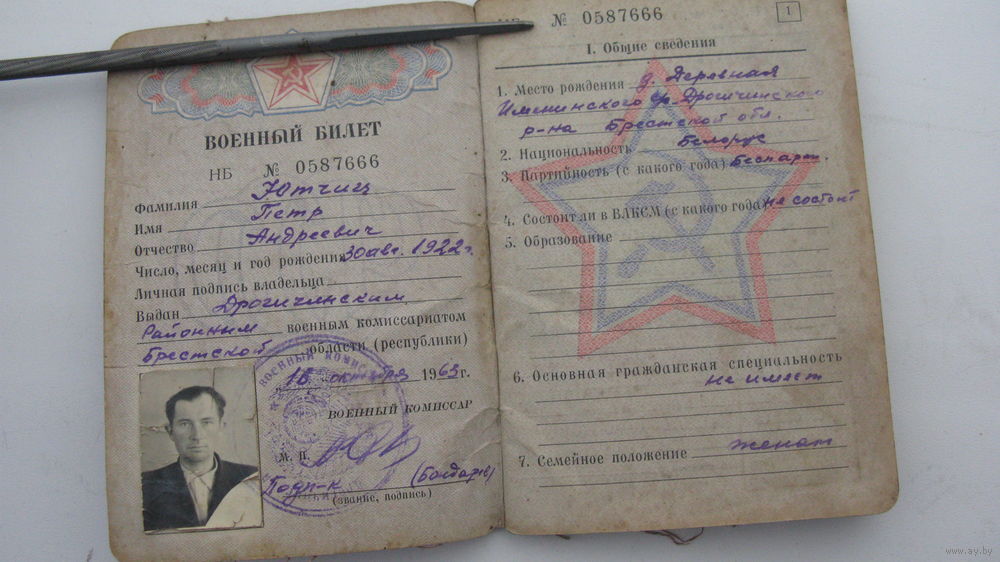 ВОЕННЫЙ БИЛЕТ
НБ № 0587666
Фамилия Ютчиц
Имя Петр
Отчество Андреевич
Число, месяц и год рождения 30 авг. 1922 г.
Личная подпись владельца
Выдан Дрогичинским
Районным военным комиссариатом
Брестской области (республики)
16 октября 1963 г.
ВОЕННЫЙ КОМИССАР
М. П.
Подп-к
(звание, подпись)
НБ № 0587666
1
I. Общие сведения
1. Место рождения д. Деревная
Именинского с/с Дрогичинского
р-на Брестской обл.
2. Национальность Белорус
3. Партийность (с какого года) Беспарт.
4. Состоит ли в ВЛКСМ (с какого года) не состоит
5. Образование
6. Основная гражданская специальность
не имеет
7. Семейное положение женат
www.ay.by